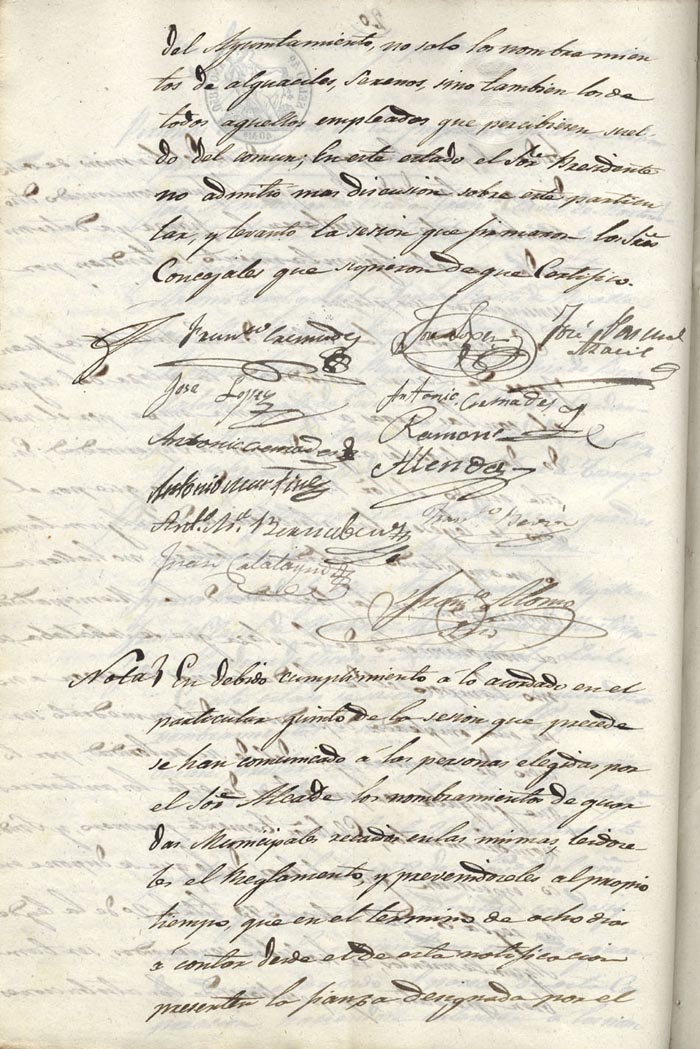 del Ayuntamiento, no solo los nombramien
tos de alguaciles, serenos, sino tambien los de
todos aquellos empleados que percibiesen suel-
do del comun; En este estado el Sor. Presidente
no admitió mas discusion sobre este particu
lar, y levantó la sesion que firmaron los Sres
Concejales que supieron de que Certifico.
Franco. Cremades
José Pascual
Aracil
José Lopez
Antonio Cremades
Antonio Cremades
Ramon
Antonio Martinez
Anto. Ma. Bernabeu
Juan Calatayud
Franco. Alonso
Srio
Nota En debido cumplimiento a lo acordado en el
particular quinto de la sesion que precede
se han comunicado á las personas elegidas por
el Sor. Alcade los nombramientos de guar
das Municipales recaidos en las mismas, leidore
les el Reglamento, y previendoseles al propio
tiempo, que en el termino de ocho dias
á contar desde el de esta notificacion
presenten la fianza designada por el